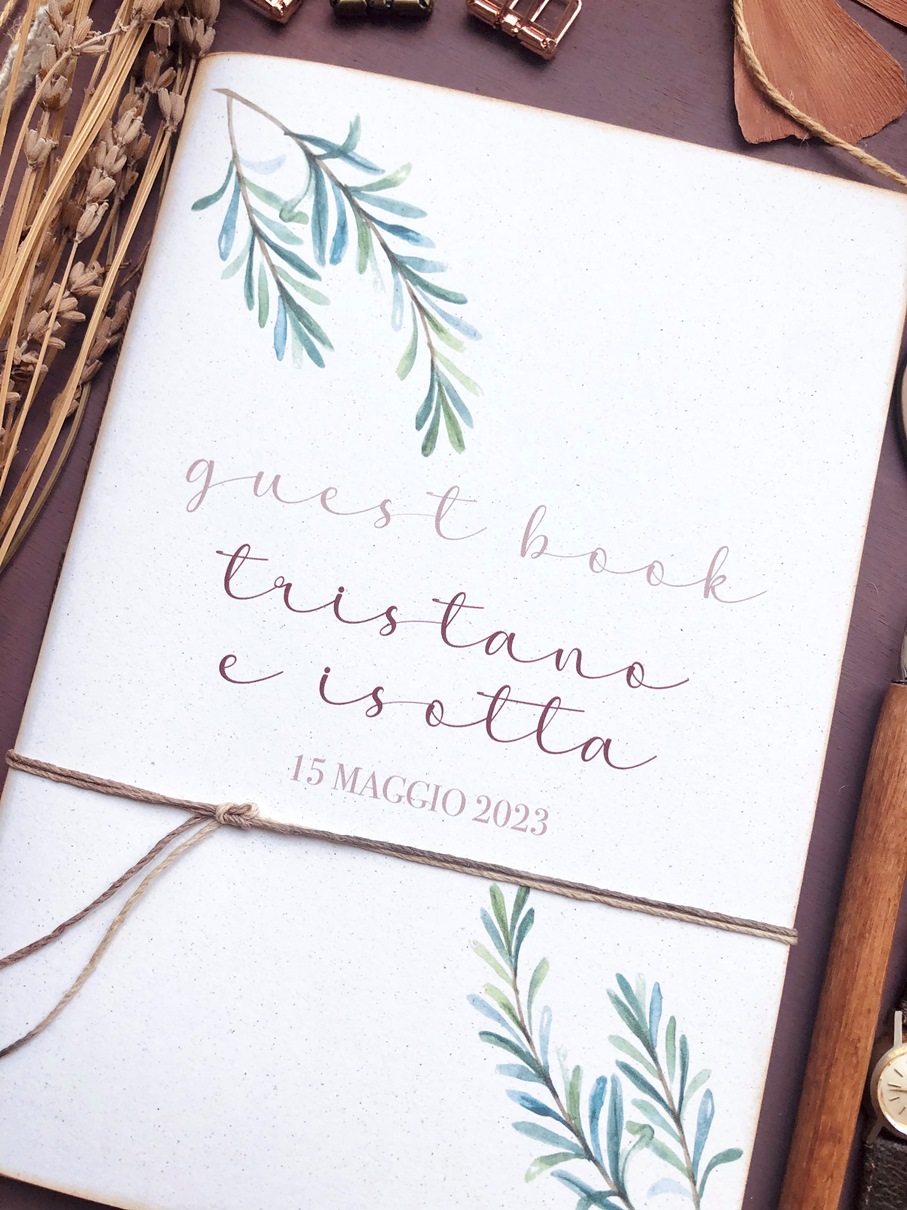 guest book
tristano
e isotta
15 MAGGIO 2023